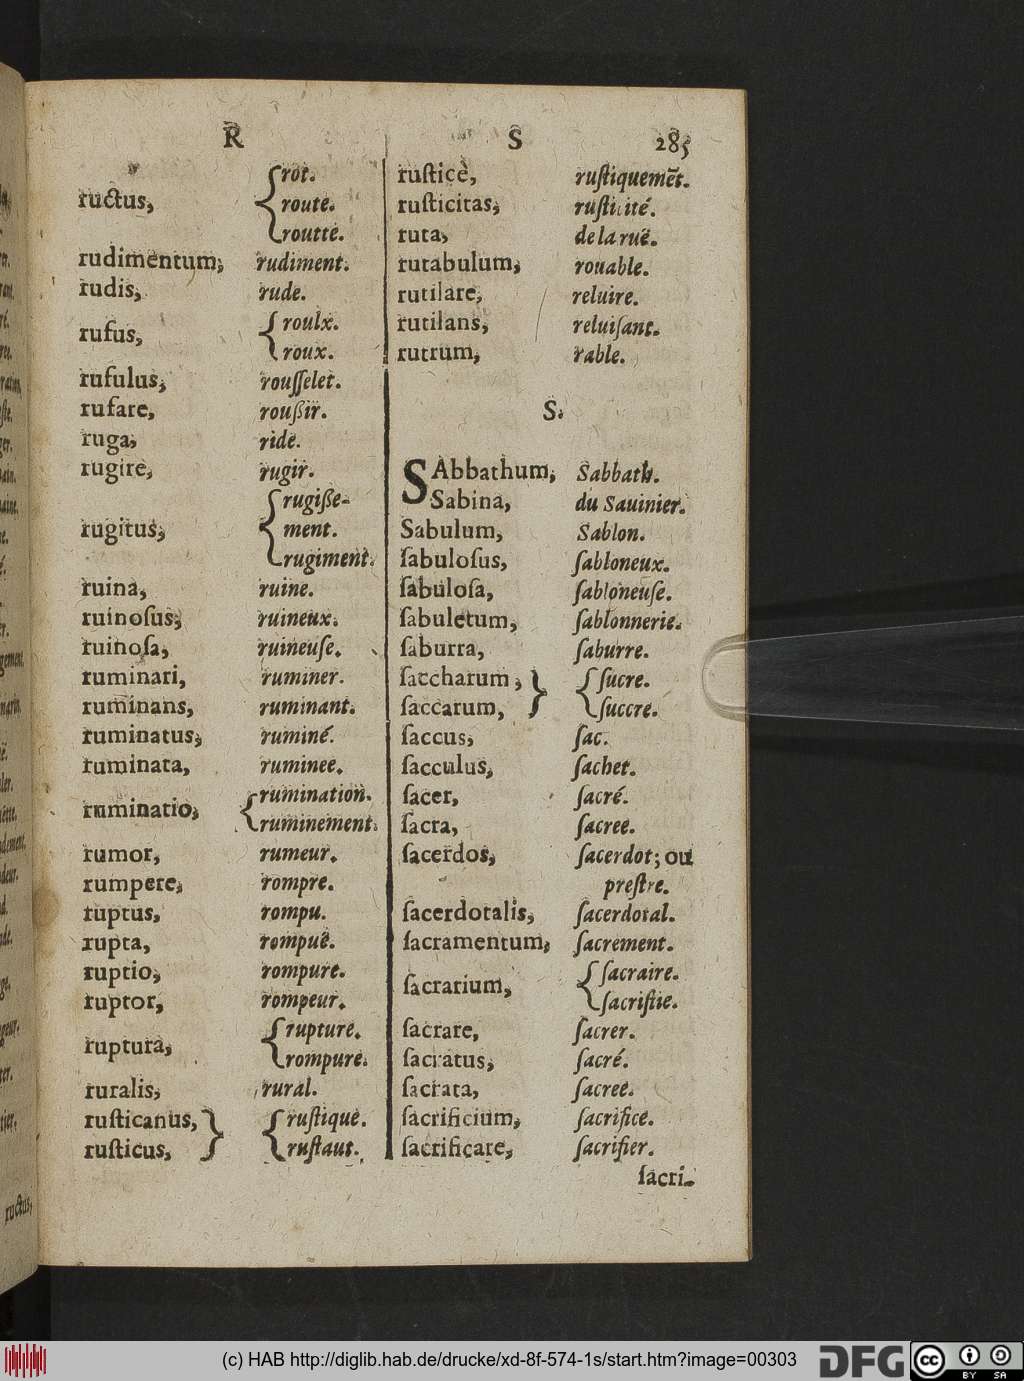 R S 285
ructus, { rot.
route.
routte.
rudimentum, rudiment.
rudis, rude.
rufus, { roulx.
roux.
rufulus, rouſſelet.
rufare, roußir.
ruga, ride.
rugire, rugir.
rugitus, { rugiße-
ment.
rugiment.
ruina, ruine.
ruinoſus, ruineux.
ruinoſa, ruineuſe.
ruminari, ruminer.
ruminans, ruminant.
ruminatus, ruminé.
ruminata, ruminee.
ruminatio, { rumination.
ruminement.
rumor, rumeur.
rumpere, rompre.
ruptus, rompu.
rupta, rompuë.
ruptio, rompure.
ruptor, rompeur.
ruptura, { rupture.
rompure.
ruralis, rural.
ruſticanus, } { ruſtique.
ruſticus, ruſtaut.
ruſticè, ruſtiquemēt.
ruſticitas, ruſticité.
ruta, de la ruë.
rutabulum, rouable.
rutilare, reluire.
rutilans, reluiſant.
rutrum, rable.
S.
SAbbathum, Sabbath.
Sabina, du Sauinier.
Sabulum, Sablon.
ſabuloſus, ſabloneux.
ſabuloſa, ſabloneuſe.
ſabuletum, ſablonnerie.
ſaburra, ſaburre.
ſaccharum, } { ſucre.
ſaccarum, ſuccre.
ſaccus, ſac.
ſacculus, ſachet.
ſacer, ſacré.
ſacra, ſacree.
ſacerdos, ſacerdot; ou
preſtre.
ſacerdotalis, ſacerdotal.
ſacramentum, ſacrement.
ſacrarium, { ſacraire.
ſacriſtie.
ſacrare, ſacrer.
ſacratus, ſacré.
ſacrata, ſacree.
ſacrificium, ſacrifice.
ſacrificare, ſacrifier.
ſacri-
ructus,
(c) HAB http://diglib.hab.de/drucke/xd-8f-574-1s/start.htm?image=00303
DFG
cc BY SA